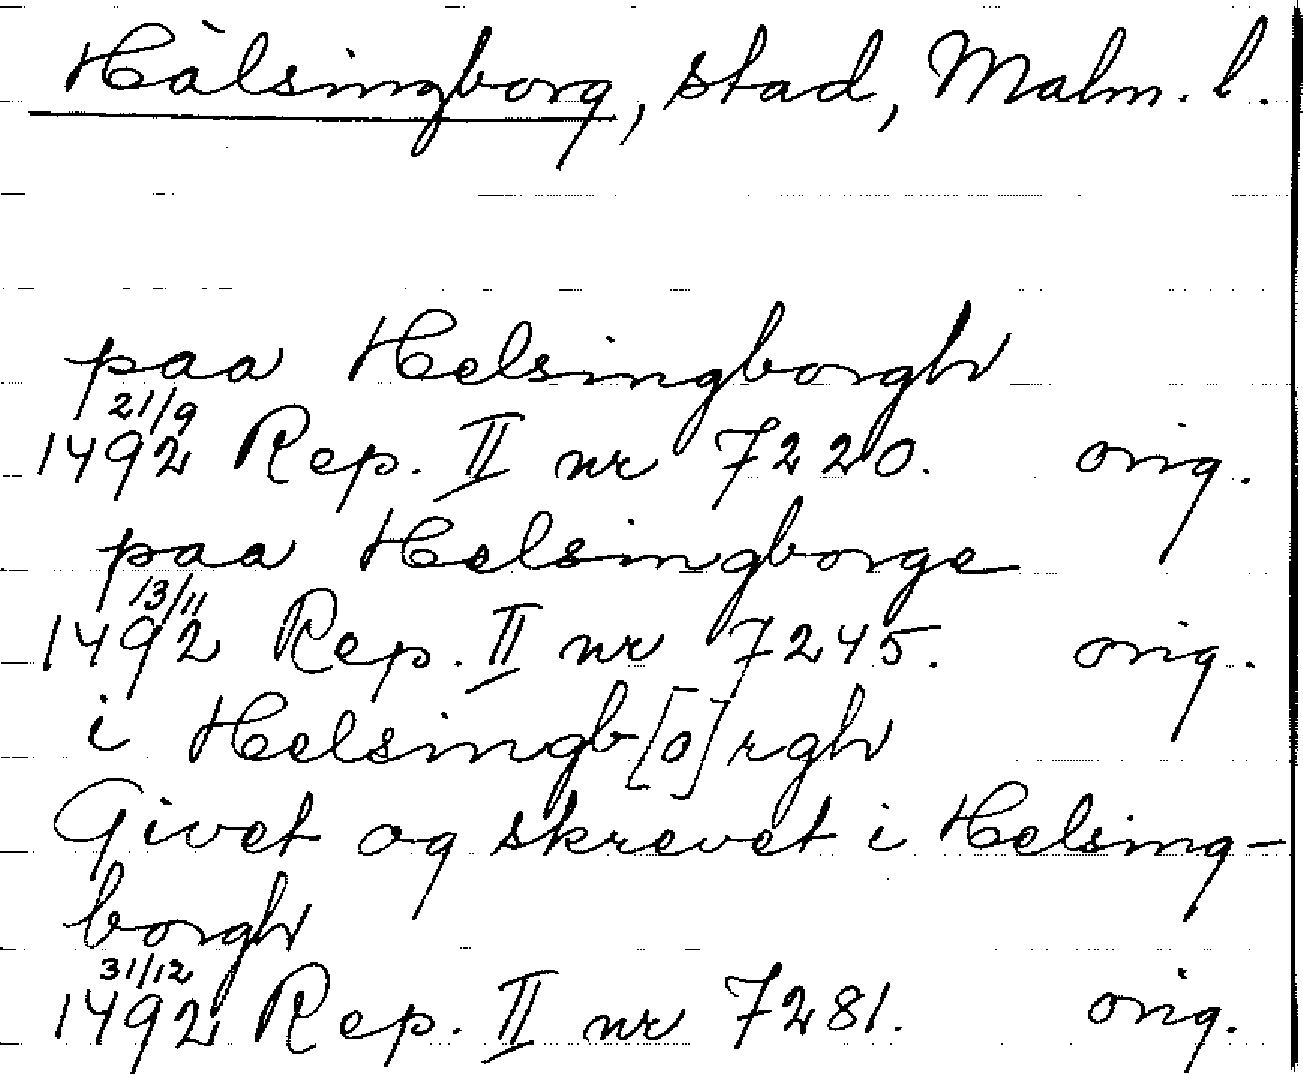 Hälsingborg, stad, Malm. l.
paa Helsingborgh
21/9
1492 Rep. II nr 7220. orig.
paa Helsingborge
13/11
1492 Rep. II nr 7245. orig.
i Helsingb[o]rgh
Givet og skrevet i Helsing-
borgh
31/12
1492 Rep. II nr 7281. orig.